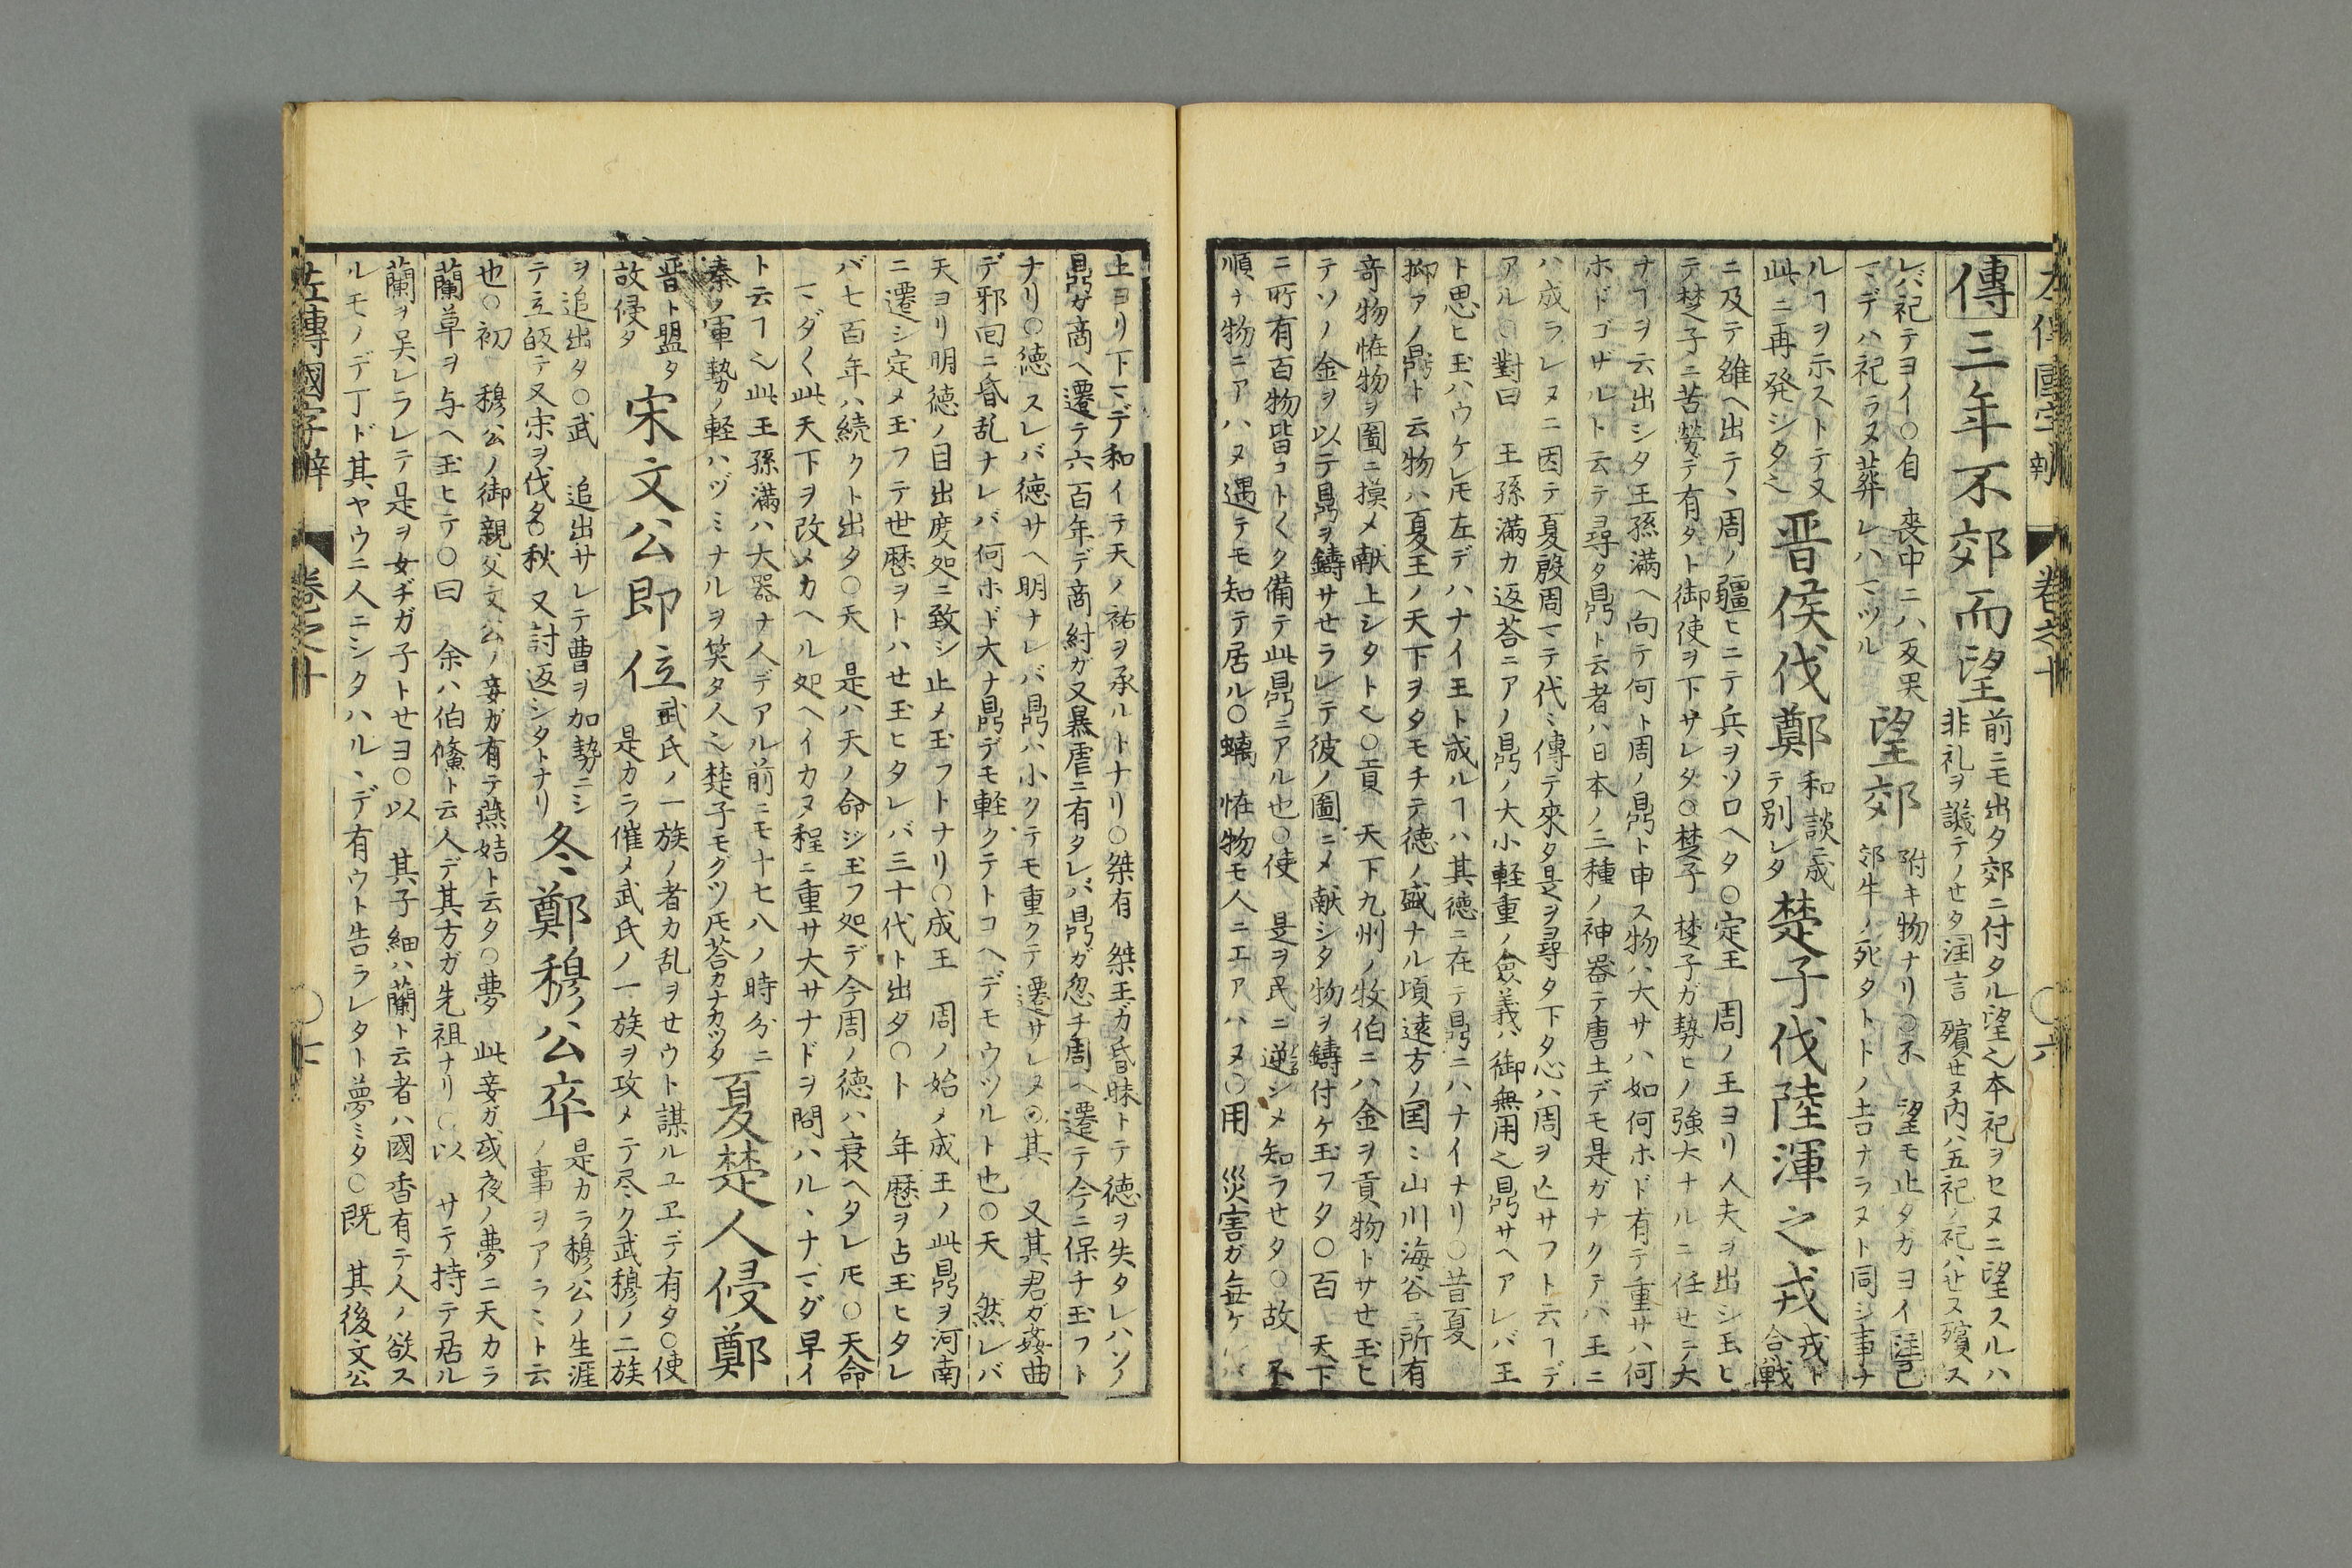 左傳國字辯 卷之十 〇六
傳三年不郊而望
前ニモ出タ郊ニ付タル望也本祀ヲセヌニ望スルハ
非礼ヲ譏テノセタ注言 殯セヌ内ハ五祀ノ祀ハせス殯ス
レバ祀テヨイ〇自 喪中ニハ反哭
マデハ祀ラヌ葬レハマツル
望郊
附キ物ナリ〇不 望モ止タガヨイ注已
郊牛ノ死タトトノ吉ナラヌト同シ事ナ
ルヿヲ示ストテ又
此ニ再発シタ也
晋侯伐鄭
和談ニ成
テ別レタ
楚子伐陸渾之戎
戎ト
合戦
ニ及テ雒ヘ出テ、周ノ疆ヒニテ兵ヲソロヘタ〇定王 周ノ王ヨリ人夫ヲ出シ玉ヒ
テ楚子ニ苦勞テ有タト御使ヲ下サレタ〇楚子 楚子ガ勢ヒノ強大ナルニ任せニ大
ナヿヲ云出シタ王孫満ヘ向テ何ト周ノ鼎ト申ス物ハ大サハ如何ホド有テ重サハ何
ホドゴザルト云テ尋タ鼎ト云者ハ日本ノ三種ノ神器テ唐土デモ是ガナクテハ王ニ
ハ成ラレヌニ因テ夏殷周マテ代ミ傳テ來タ是ヲ尋タ下タ心ハ周ヲ亡サフト云ヿデ
アル〇對曰 王孫満カ返荅ニアノ鼎ノ大小軽重ノ僉義ハ御無用也鼎サヘアレバ王
ト思ヒ玉ハウケレ𪜈左デハナイ王ト成ルヿハ其徳ニ在テ鼎ニハナイナリ〇昔夏
抑アノ鼎ト云物ハ夏王ノ天下ヲタモチテ徳ノ盛ナル項遠方ノ国ミ山川海谷ニ所有
竒物恠物ヲ圖ニ摸メ献上シタト也〇貢 天下九州ノ牧伯ニハ金ヲ貢物トサせ玉ヒ
テソノ金ヲ以テ鼎ヲ鑄サせラレテ彼ノ圖ニメ献シタ物ヲ鑄付ケ玉フタ〇百 天下
ニ所有百物皆コト〱ク備テ此鼎ニアル也〇使 是ヲ民ニ逆シメ知ラせタ〇故 不
順ナ物ニアハヌ遇テモ知テ居ル〇螭 恠物モ人ニエアハヌ〇用 災害ガ無ケレバ
上ヨリ下マデ和イテ天ノ祐ヲ承ルトナリ〇桀有 桀王ガ昏昧トテ徳ヲ失タレハソノ
鼎ガ商ヘ遷テ六百年デ商紂ガ又暴虐ニ有タレバ鼎ガ忽チ周ヘ遷テ今ニ保チ玉フト
ナリ〇徳 スレバ徳サヘ明ナレバ鼎ハ小クテモ重クテ遷サレヌ〇其 又其君ガ姦曲
デ邪囘ニ昏乱ナレバ何ホド大ナ鼎デモ軽クテトコヘデモウツルト也〇天 然レバ
天ヨリ明徳ノ目出度処ニ致シ止メ玉フトナリ〇成王 周ノ始メ成王ノ此鼎ヲ河南
ニ遷シ定メ玉フテ世歴ヲトハせ玉ヒタレバ三十代ト出タ〇ト 年歴ヲ占玉ヒタレ
バ七百年ハ続クト出タ〇天 是ハ天ノ命ジ玉フ処デ今周ノ徳ハ衰ヘタレ𪜈〇天命
マダ〱此天下ヲ改メカヘル処ヘイカヌ程ニ重サ大サナドヲ問ハル、ナマダ早イ
ト云ヿ也此王孫満ハ大器ナ人デアル前ニモ十七八ノ時分ニ
秦ノ軍勢ノ軽ハヅミナルヲ笑タ人也楚子モグツ𪜈荅カナカツタ
夏楚人侵鄭
晋ト盟タ
故侵タ
宋文公即位
武氏ノ一族ノ者カ乱ヲせウト謀ルユヱデ有タ〇使
是カラ催メ武氏ノ一族ヲ攻メテ尽ク武穆ノ二族
ヲ追出タ〇武 追出サレテ曹ヲ加勢ニシ
テ立皈テ又宋ヲ伐タ〇秋 又討返シタトナリ
冬鄭穆公卒
是カラ穆公ノ生涯
ノ事ヲアラミト云
也〇初 穆公ノ御親父文公ノ妾ガ有テ燕姞ト云タ〇夢 此妾ガ或夜ノ夢ニ天カラ
蘭草ヲ与ヘ玉ヒテ〇曰 余ハ伯鯈ト云人デ其方ガ先祖ナリ〇以 サテ持テ居ル
蘭ヲ呉レラレテ是ヲ女ヂガ子トせヨ〇以 其子細ハ蘭ト云者ハ國香有テ人ノ欲ス
ルモノデ丁ド其ヤウニ人ニシタハル、デ有ウト告ラレタト夢ミタ〇既 其後文公
左傳國字辯 卷之十 〇七